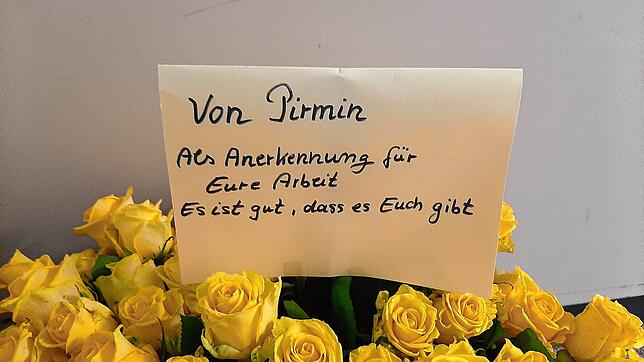 Von Pirmin
Als Anerkennung für
Eure Arbeit
Es ist gut, dass es Euch gibt